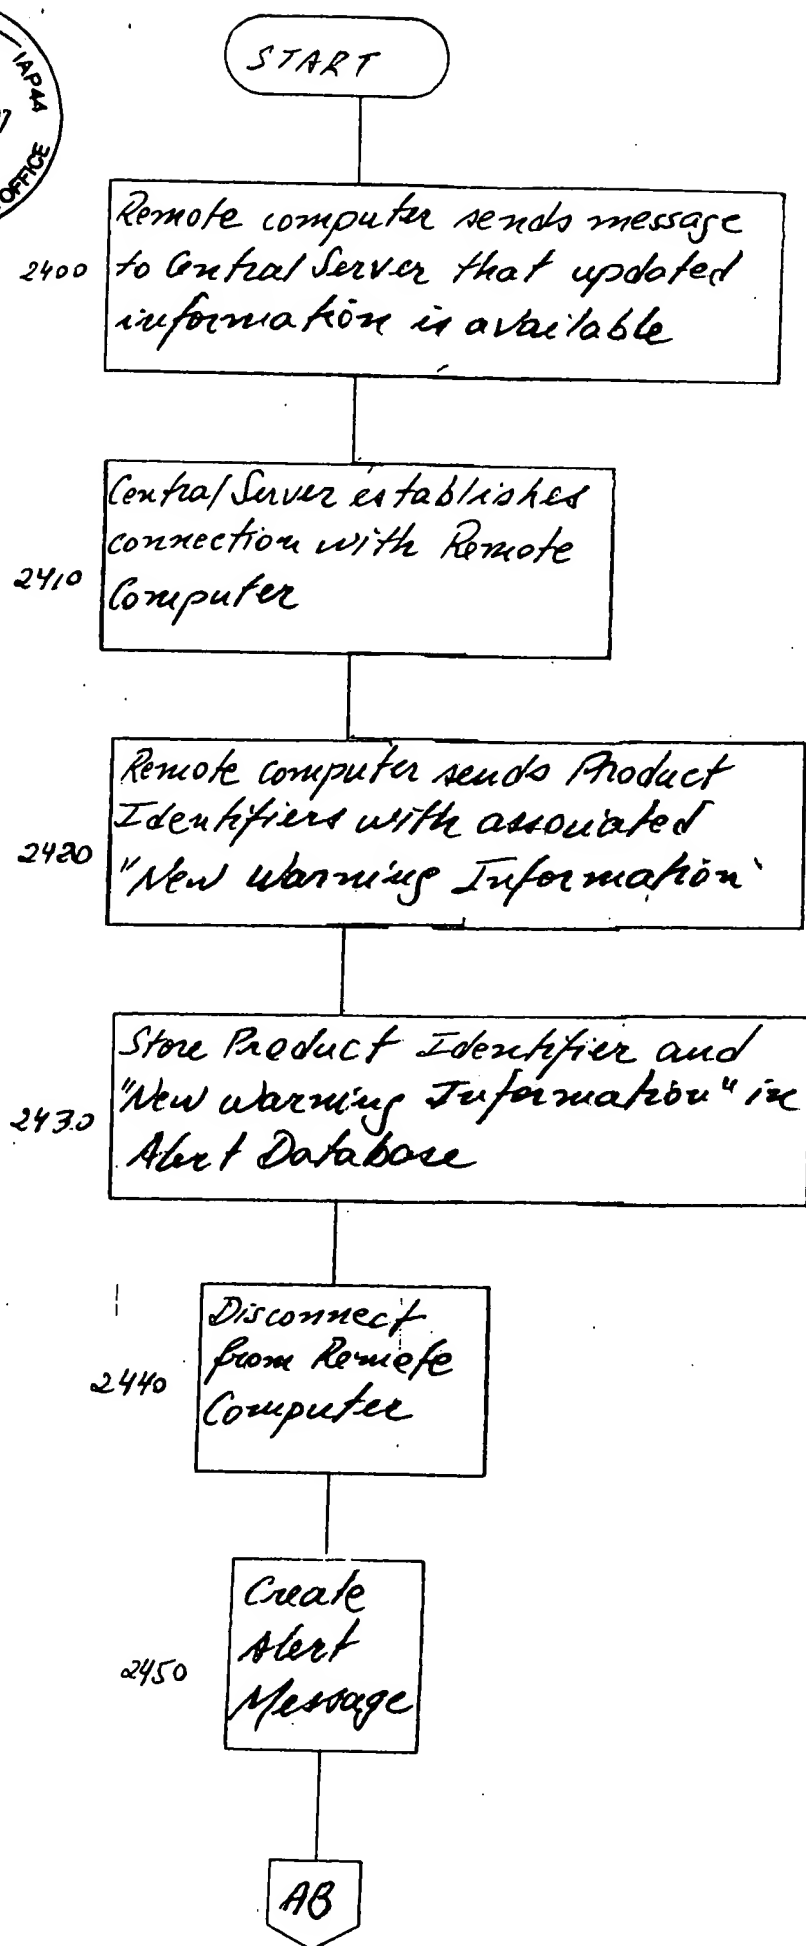 IAP44
OFFICE
START
2400
Remote computer sends message
to Central Server that updated
information is available
2410
Central Server establishes
connection with Remote
Computer
2420
Remote computer sends Product
Identifiers with associated
"New Warning Information"
2430
Store Product Identifier and
"New Warning Information" in
Alert Database
2440
Disconnect
from Remote
Computer
2450
Create
Alert
Message
AB